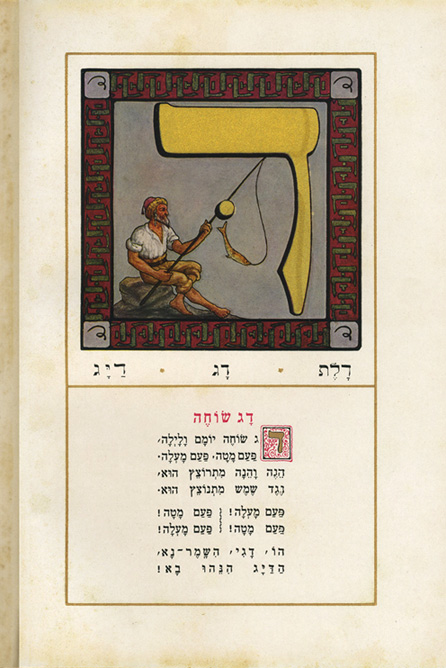 ד ד
ד
ד ד
דָלֶת • דָג • דַיָג
דָג שׂוֹחֶה
דָג שׂוֹחֶה יוֹמָם וָלַיְלָה,
פַּעַם מַטָּה, פַּעַם מַעְלָה.
הֵנָּה וָהֵנָּה מִתְרוֹצֵץ הוּא,
נֶגֶד שֶׁמֶשׁ מִתְנוֹצֵץ הוּא.
פַּעַם מַעְלָה! פַּעַם מַטָּה!
פַּעַם מַטָּה! פַּעַם מַעְלָה!
הוֹ, דָגִי, הִשָּׁמֶר־נָא,
הַדַּיָּג הִנֵּהוּ בָא!